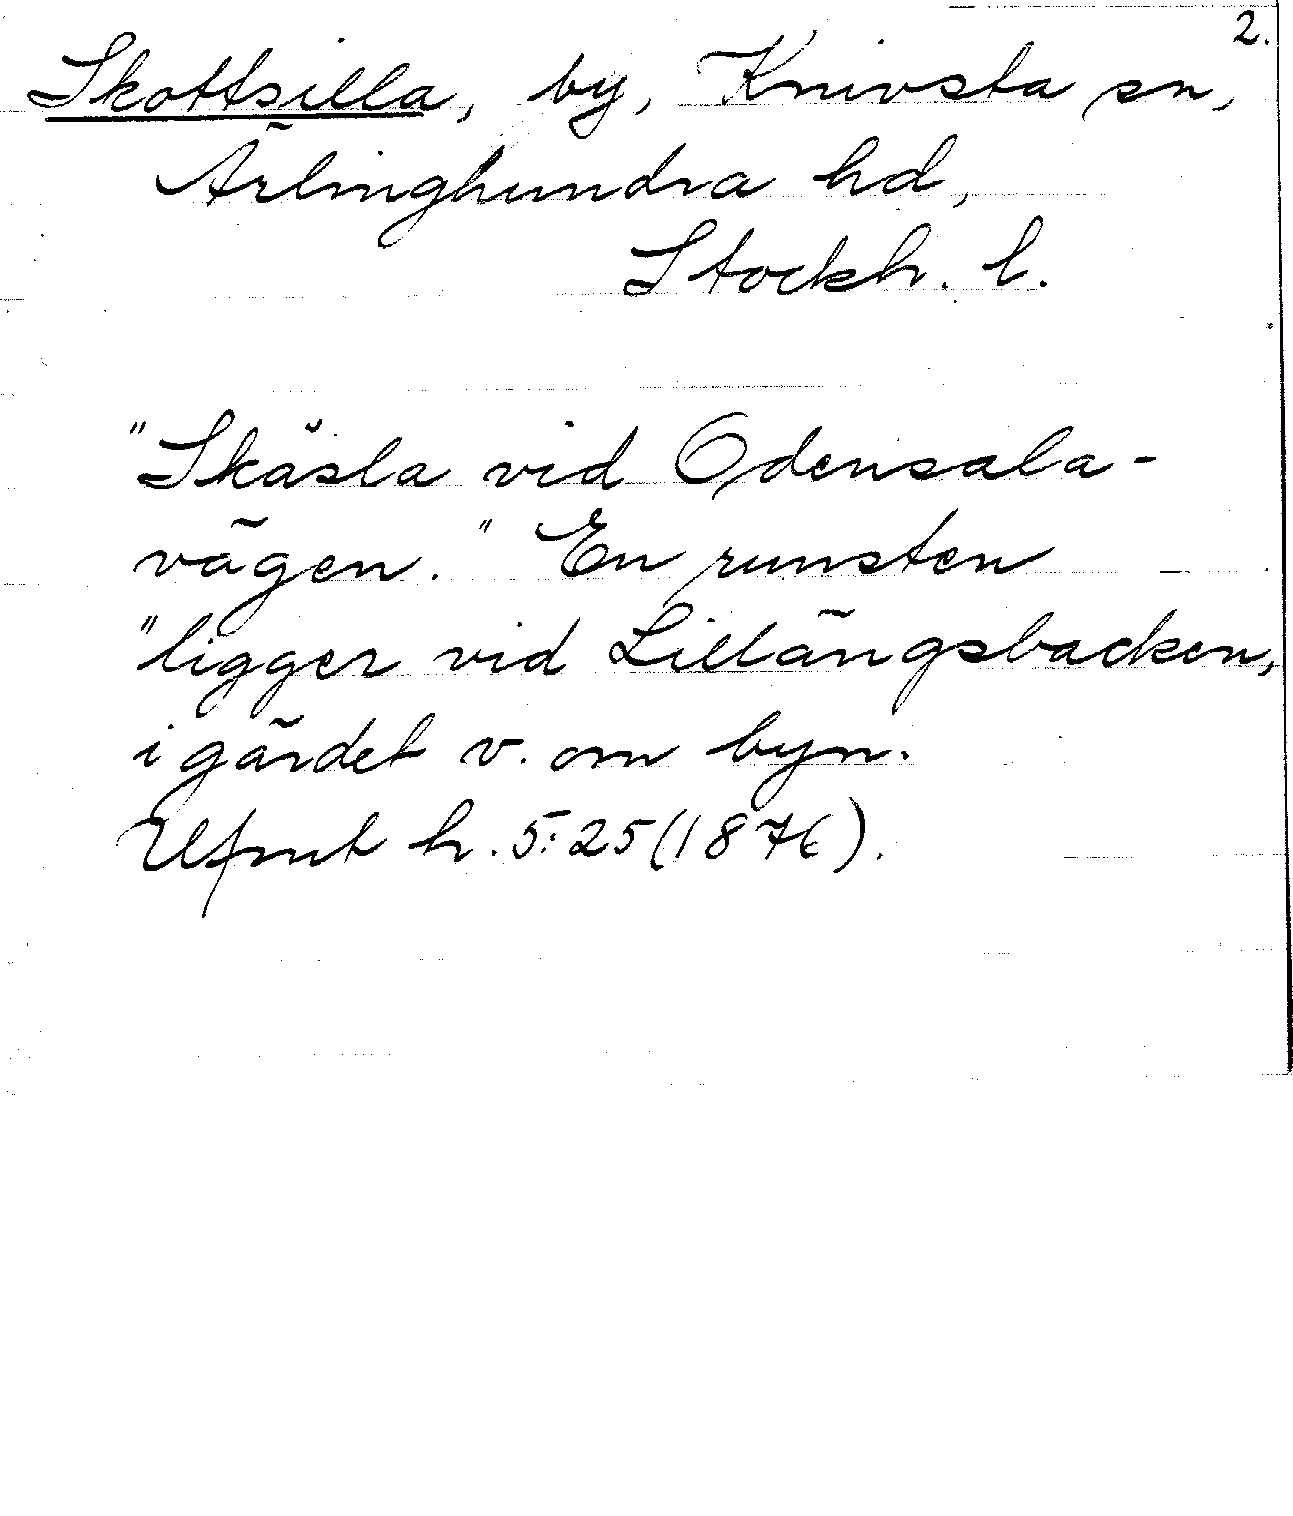 2.
Skottsilla, by, Knivsta sn,
Ärlinghundra hd,
Stockh. l.
"Skåsla vid Odensala-
vägen." En runsten
"ligger vid Lillängsbacken,
i gärdet v. om byn.
Upmt h. 5:25 (1876).